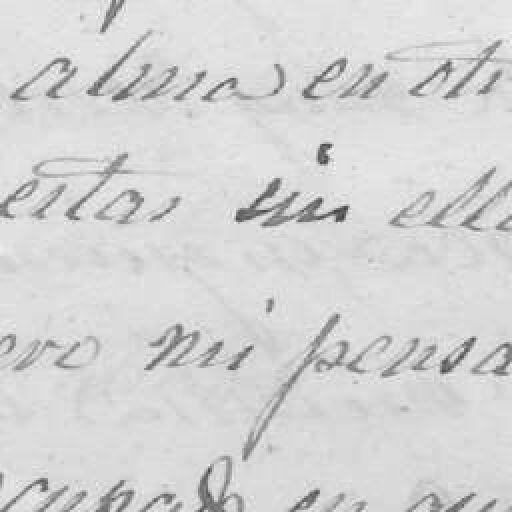 alma en otr
estas sin ella
ero mi pensa
cupado en